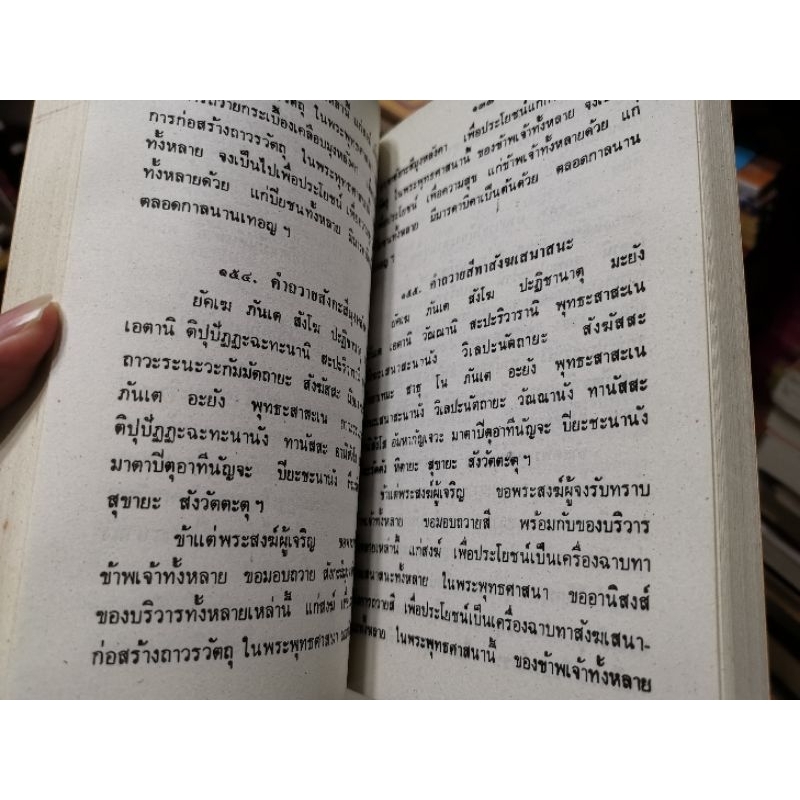 ถวายกระเบื้องเคลือบมุงหลังคา
การก่อสร้างถาวรวัตถุ ในพระพุทธศาส
ทั้งหลาย จงเป็นไปเพื่อประโยชน์ เพื่อความ
ทั้งหลายด้วย แก่ปิยชนทั้งหลาย มีมาร
ตลอดกาลนานเทอญ ฯ
๑๕๔. คำถวายสังกะสีมุงหลัง
ยัคเฆ ภันเต สังโฆ ปะฏิชา
เอตานิ ติปุปัฏฏะฉะทะนานิ สะปะริวารา
ถาวะระนะวะกัมมัตถายะ สังฆัสสะ นิ
ภันเต อะยัง พุทธะสาสะเน ถาวะระ
ติปุปัฏฏะฉะทะนานัง ทานัสสะ อานิสังโส
มาตาปีตุอาทีนัญจะ ปิยะชะนานัง
สุขายะ สังวัตตะตุ ฯ
ข้าแต่พระสงฆ์ผู้เจริญ ขอพระ
ข้าพเจ้าทั้งหลาย ขอมอบถวาย สังกะสีมุง
ของบริวารทั้งหลายเหล่านี้ แก่สงฆ์ เพื่อ
ก่อสร้างถาวรวัตถุ ในพระพุทธศาสนา
มุงหลังคา เพื่อประโยชน์แก่
ในพระพุทธศาสนานี้ ของข้าพเจ้าทั้งหลาย จงเป็น
ประโยชน์ เพื่อความสุข แก่ข้าพเจ้าทั้งหลายด้วย แก่
ทั้งหลาย มีมารดาบิดาเป็นต้นด้วย ตลอดกาลนาน
ฯ
๑๕๕. คำถวายสีทาสังฆเสนาสนะ
ยัคเฆ ภันเต สังโฆ ปะฏิชานาตุ มะยัง
เอตานิ วัณณานิ สะปะริวารานิ พุทธะสาสะเน
เสนาสะนานัง วิเลปะนัตถายะ สังฆัสสะ
สาธุ โน ภันเต อะยัง พุทธะสาสะเน
เสนาสะนานัง วิเลปะนัตถายะ วัณณานัง ทานัสสะ
อัมหากัญเจวะ มาตาปีตุอาทีนัญจะ ปิยะชะนานัง
หิตายะ สุขายะ สังวัตตะตุ ฯ
ข้าแต่พระสงฆ์ผู้เจริญ ขอพระสงฆ์ผู้จงรับทราบ
ข้าพเจ้าทั้งหลาย ขอมอบถวายสี พร้อมกับของบริวาร
เหล่านี้ แก่สงฆ์ เพื่อประโยชน์เป็นเครื่องฉาบทา
เสนาสนะทั้งหลาย ในพระพุทธศาสนา ขออานิสงส์
การถวายสี เพื่อประโยชน์เป็นเครื่องฉาบทาสังฆเสนา-
ทั้งหลาย ในพระพุทธศาสนานี้ ของข้าพเจ้าทั้งหลาย